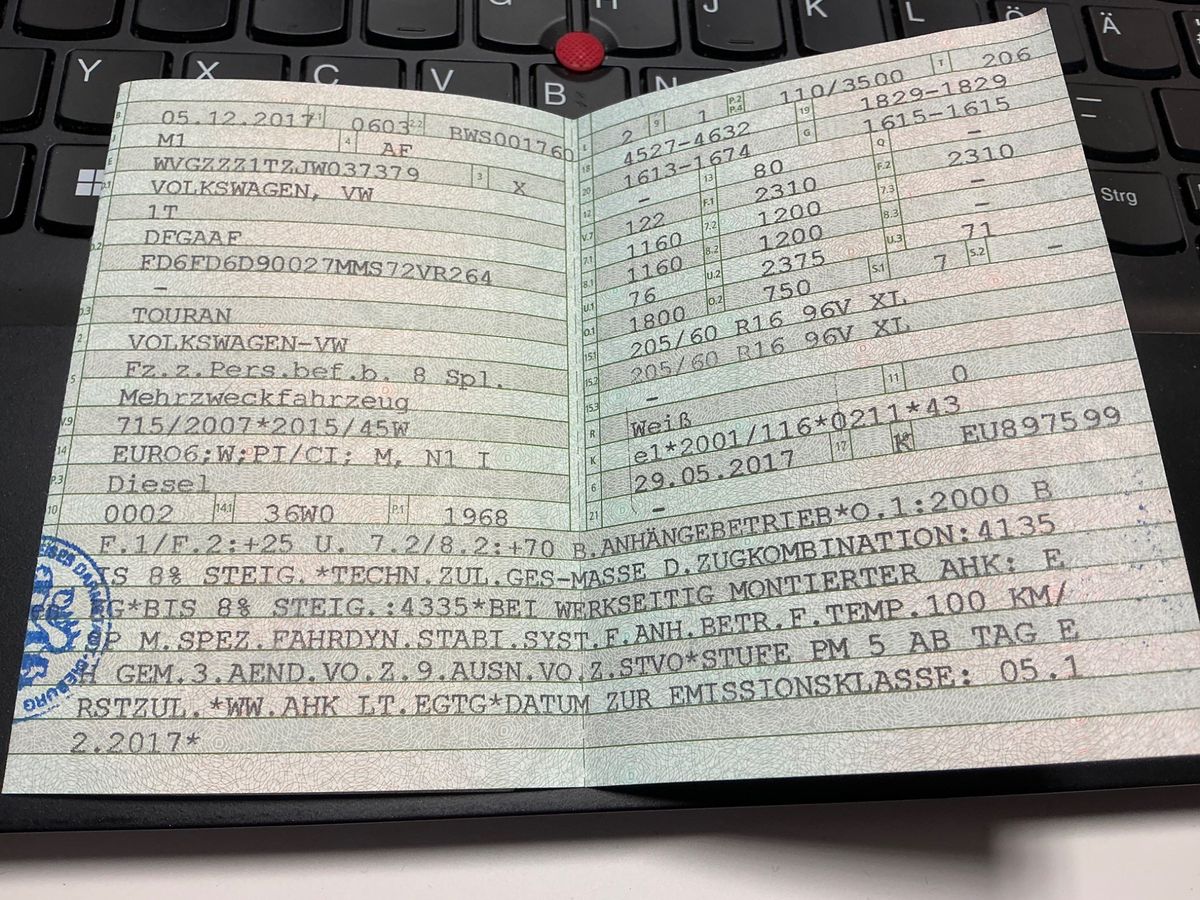 G H J K L Ö Ä
Y X C V B N
Strg
B 05.12.2017 2.1 0603 2.2 BWS001760
J M1 4 AF
E WVGZZZ1TZJW037379 3 X
D.1 VOLKSWAGEN, VW
1T
D.2 DFGAAF
FD6FD6D90027MMS72VR264
–
D.3 TOURAN
2 VOLKSWAGEN-VW
5 Fz.z.Pers.bef.b. 8 Spl.
Mehrzweckfahrzeug
V.9 715/2007*2015/45W
14 EURO6;W;PI/CI; M, N1 I
P.3 Diesel
10 0002 14.1 36W0 P.1 1968
L 2 9 1 P.2 P.4 110/3500 T 206
18 4527-4632 19 1829-1829
20 1613-1674 G 1615-1615
12 – 13 80 Q –
V.7 122 F.1 2310 F.2 2310
7.1 1160 7.2 1200 7.3 –
8.1 1160 8.2 1200 8.3 –
U.1 76 U.2 2375 U.3 71
O.1 1800 O.2 750 S.1 7 S.2 –
15.1 205/60 R16 96V XL
15.2 205/60 R16 96V XL
15.3 –
R Weiß 11 0
K e1*2001/116*0211*43
6 29.05.2017 17 K EU897599
21 –
F.1/F.2:+25 U. 7.2/8.2:+70 B.ANHÄNGEBETRIEB*O.1:2000 B
IS 8% STEIG.*TECHN.ZUL.GES-MASSE D.ZUGKOMBINATION:4135
KG*BIS 8% STEIG.:4335*BEI WERKSEITIG MONTIERTER AHK: E
SP M.SPEZ.FAHRDYN.STABI.SYST.F.ANH.BETR.F.TEMP.100 KM/
H GEM.3.AEND.VO.Z.9.AUSN.VO.Z.STVO*STUFE PM 5 AB TAG E
RSTZUL.*WW.AHK LT.EGTG*DATUM ZUR EMISSIONSKLASSE: 05.1
2.2017*